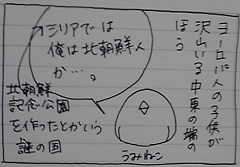 シリアでは
俺は北朝鮮人
か…。
ヨーロパ人の子供が
沢山いる中東の端の
ほう
北朝鮮
記念公園
を作ったとかいう
謎の国
うみねこ